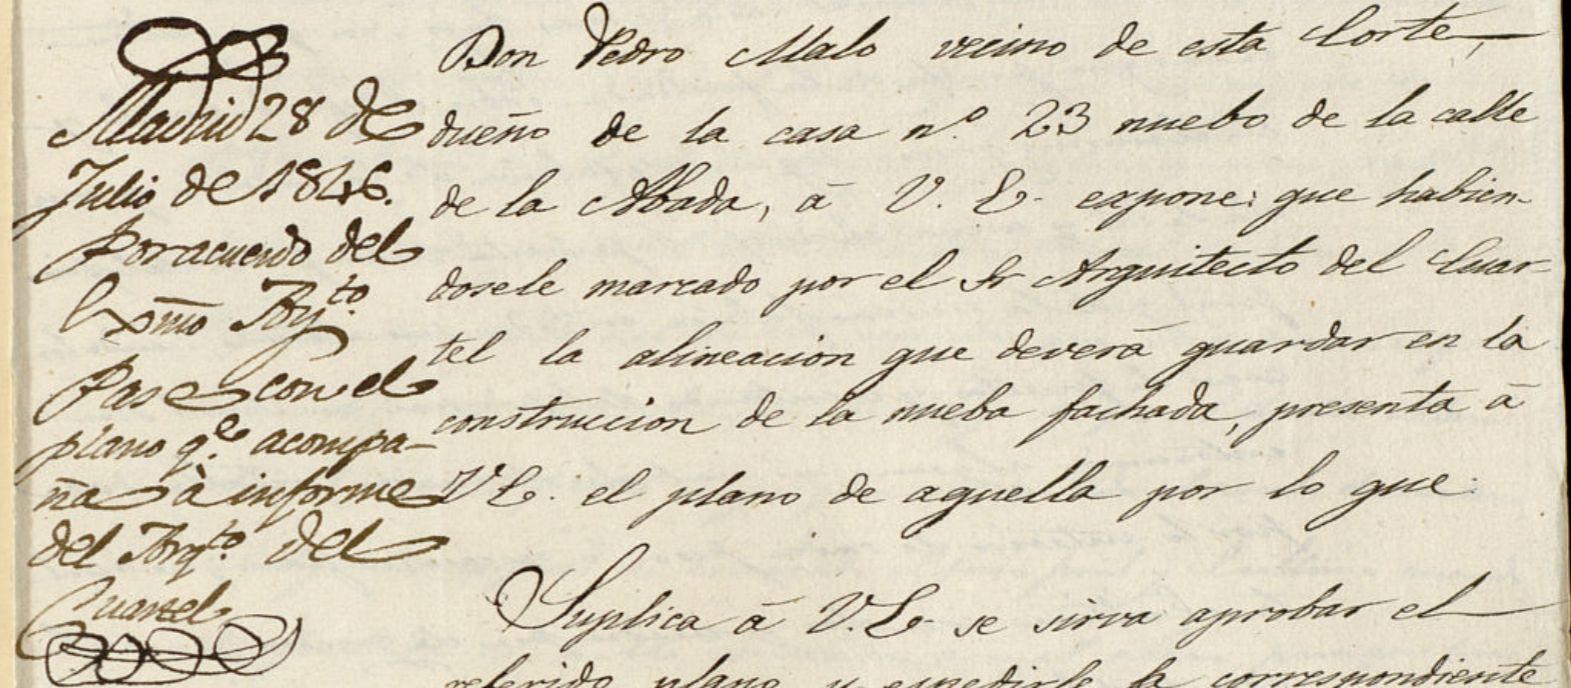 Madrid 28 de
Julio de 1846.
Por acuerdo del
Exmo Ayto.
Pase con el
plano qe. acompa-
ña à informe
del Arqto. del
Cuartel
Don Pedro Malo vecino de esta Corte,
dueño de la casa nº 23 nuebo de la calle
de la Abada, á V. E. expone: que habien-
dosele marcado por el Sr Arquitecto del Cuar-
tel la alineacion que deverá guardar en la
construccion de la nueba fachada, presenta á
V E. el plano de aquella por lo que
Suplica á V. E. se sirva aprobar el
referido plano y espedirle la correspondiente